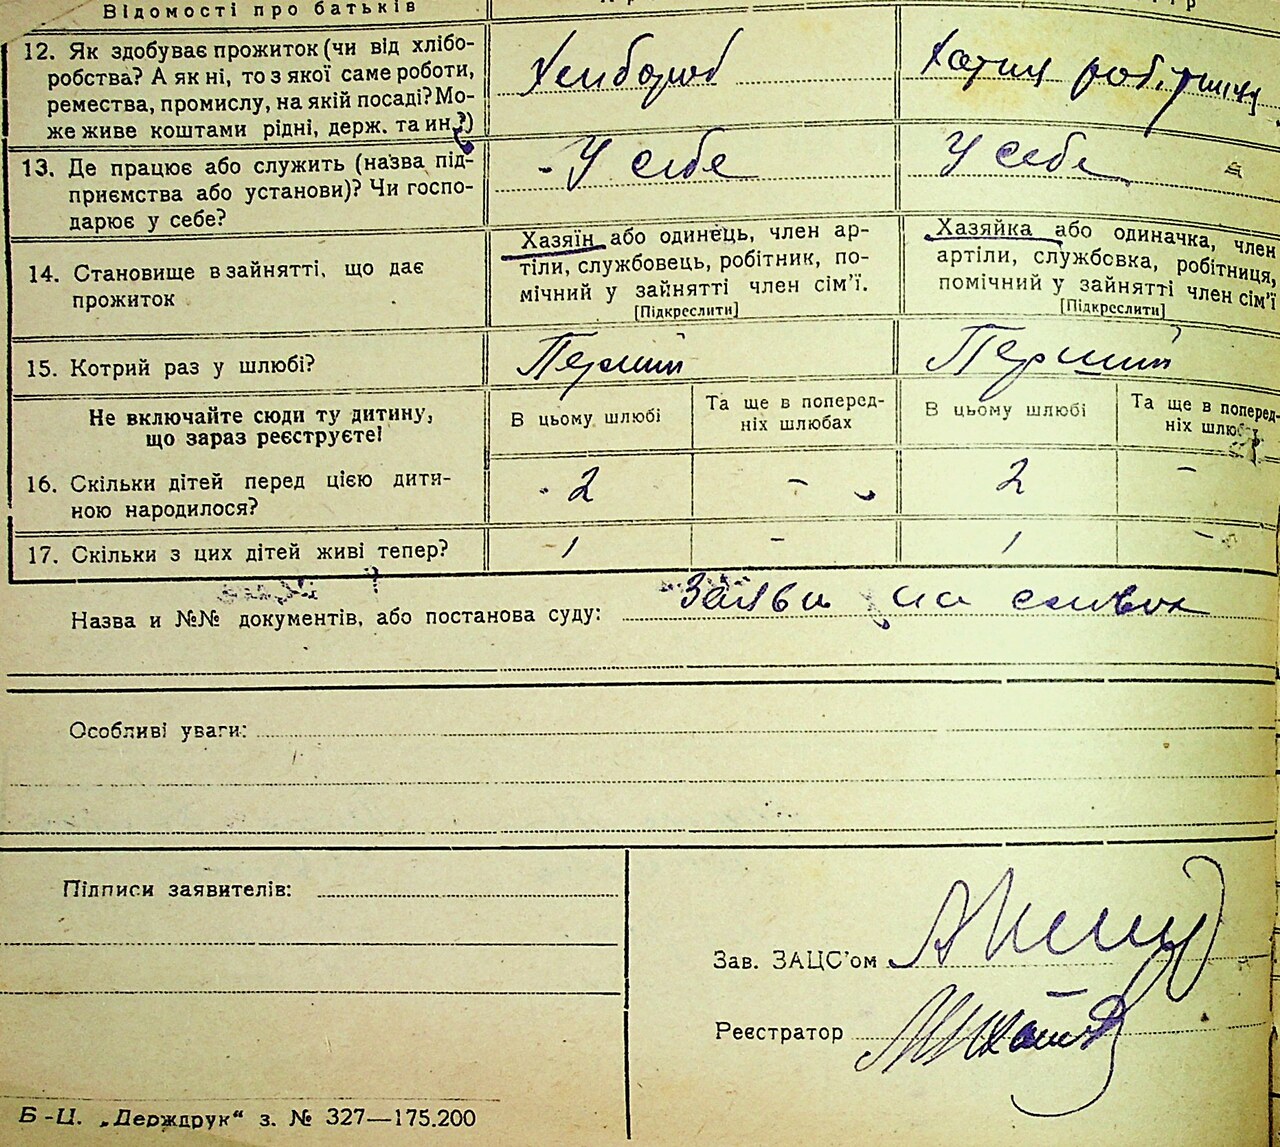 Відомості про батьків
12. Як здобуває прожиток (чи від хлібо-
робства? А як ні, то з якої саме роботи,
ремества, промислу, на якій посаді? Мо-
же живе коштами рідні, держ. та ин.?)
Хлибороб
Хатня робітниця
13. Де працює або служить (назва під-
приємства або установи)? Чи госпо-
дарює у себе?
У себе
У себе
14. Становище в зайнятті, що дає
прожиток
Хазяїн або одинець, член ар-
тіли, службовець, робітник, по-
мічний у зайнятті член сім'ї.
[Підкреслити]
Хазяйка або одиначка, член
артіли, службовка, робітниця,
помічний у зайнятті член сім'ї
[Підкреслити]
15. Котрий раз у шлюбі?
Перший
Перший
Не включайте сюди ту дитину,
що зараз реєструєте!
В цьому шлюбі
Та ще в поперед-
ніх шлюбах
В цьому шлюбі
Та ще в поперед-
ніх шлюбах
16. Скільки дітей перед цією дити-
ною народилося?
2
-
2
-
17. Скільки з цих дітей живі тепер?
1
-
1
-
Назва и №№ документів, або постанова суду:
Заява на словах
Особливі уваги:
Підписи заявителів:
Зав. ЗАЦС'ом
Реєстратор
Б-Ц. „Держдрук“ з. № 327—175.200